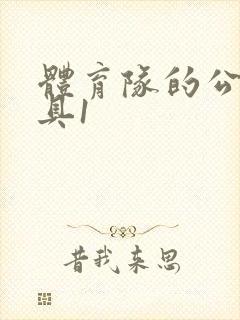 體育隊的公
具1
昔我来思